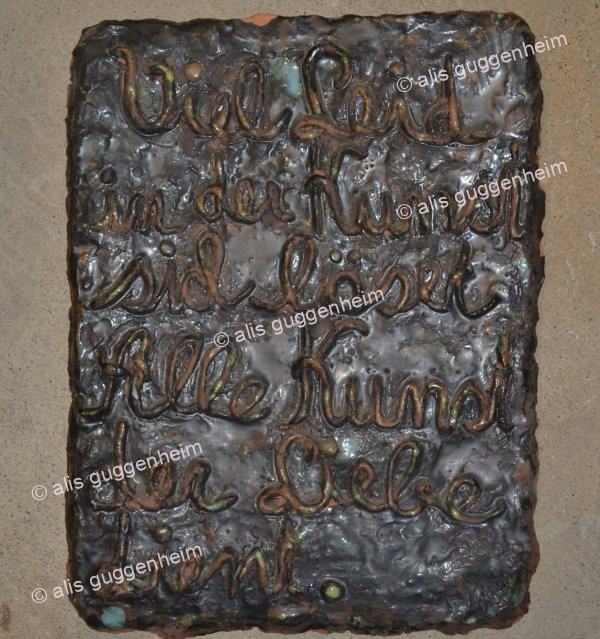 © alis guggenheim
Viel Leid
in der Kunst
© alis guggenheim
sid löset
© alis guggenheim
Alle Kunst
der Liebe
© alis guggenheim
dient.
© alis guggenheim